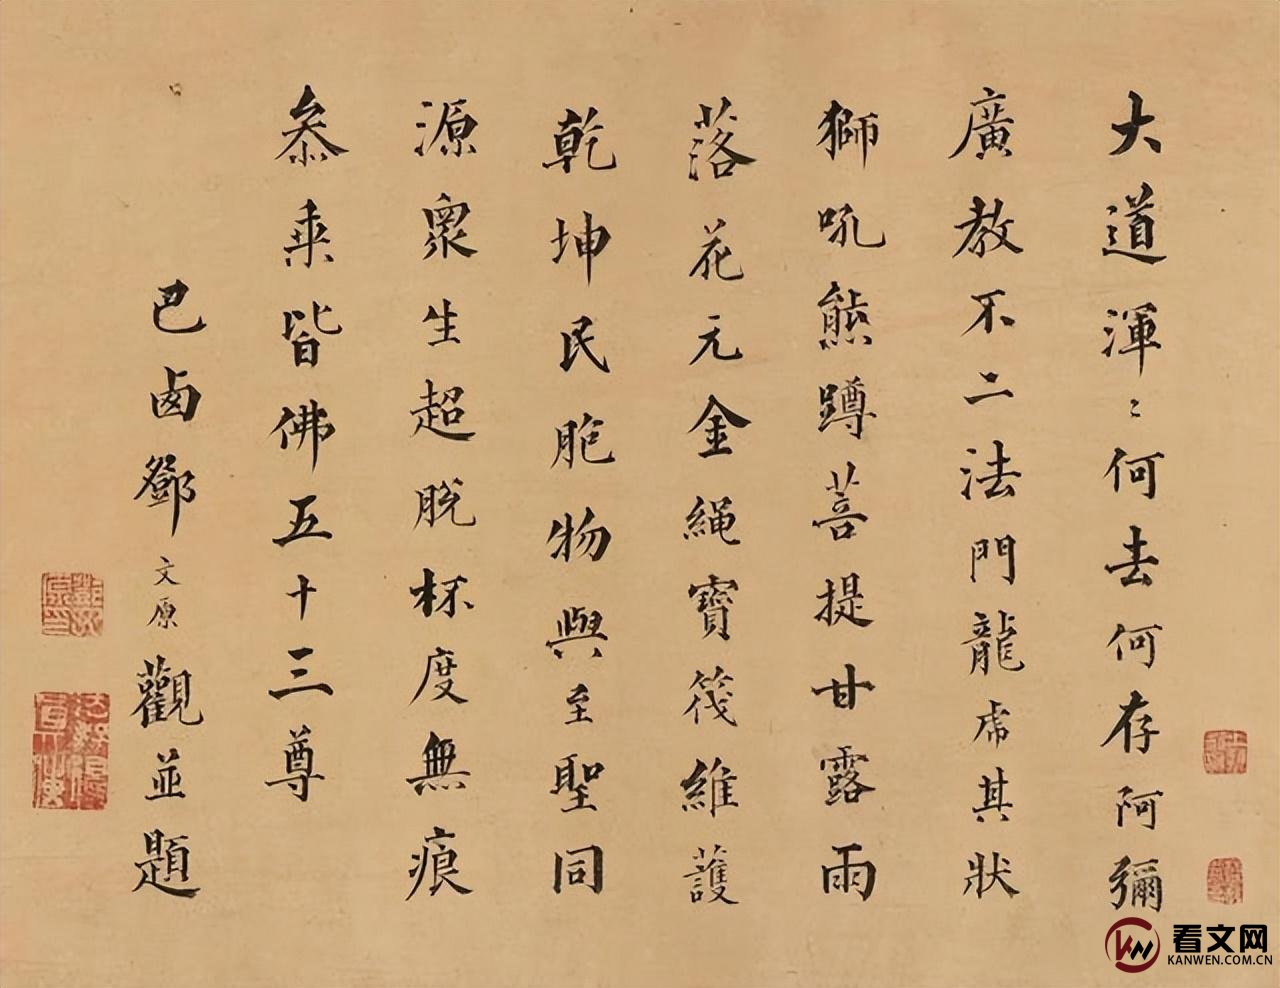 大道渾〻何去何存阿彌
廣教不二法門龍虎其狀
獅吼熊蹲菩提甘露雨
落花元金繩寶筏維護
乾坤民胞物與至聖同
源衆生超脫杯度無痕
叅来皆佛五十三尊
巴鹵鄧文原觀並題
看文网
KANWEN.COM.CN